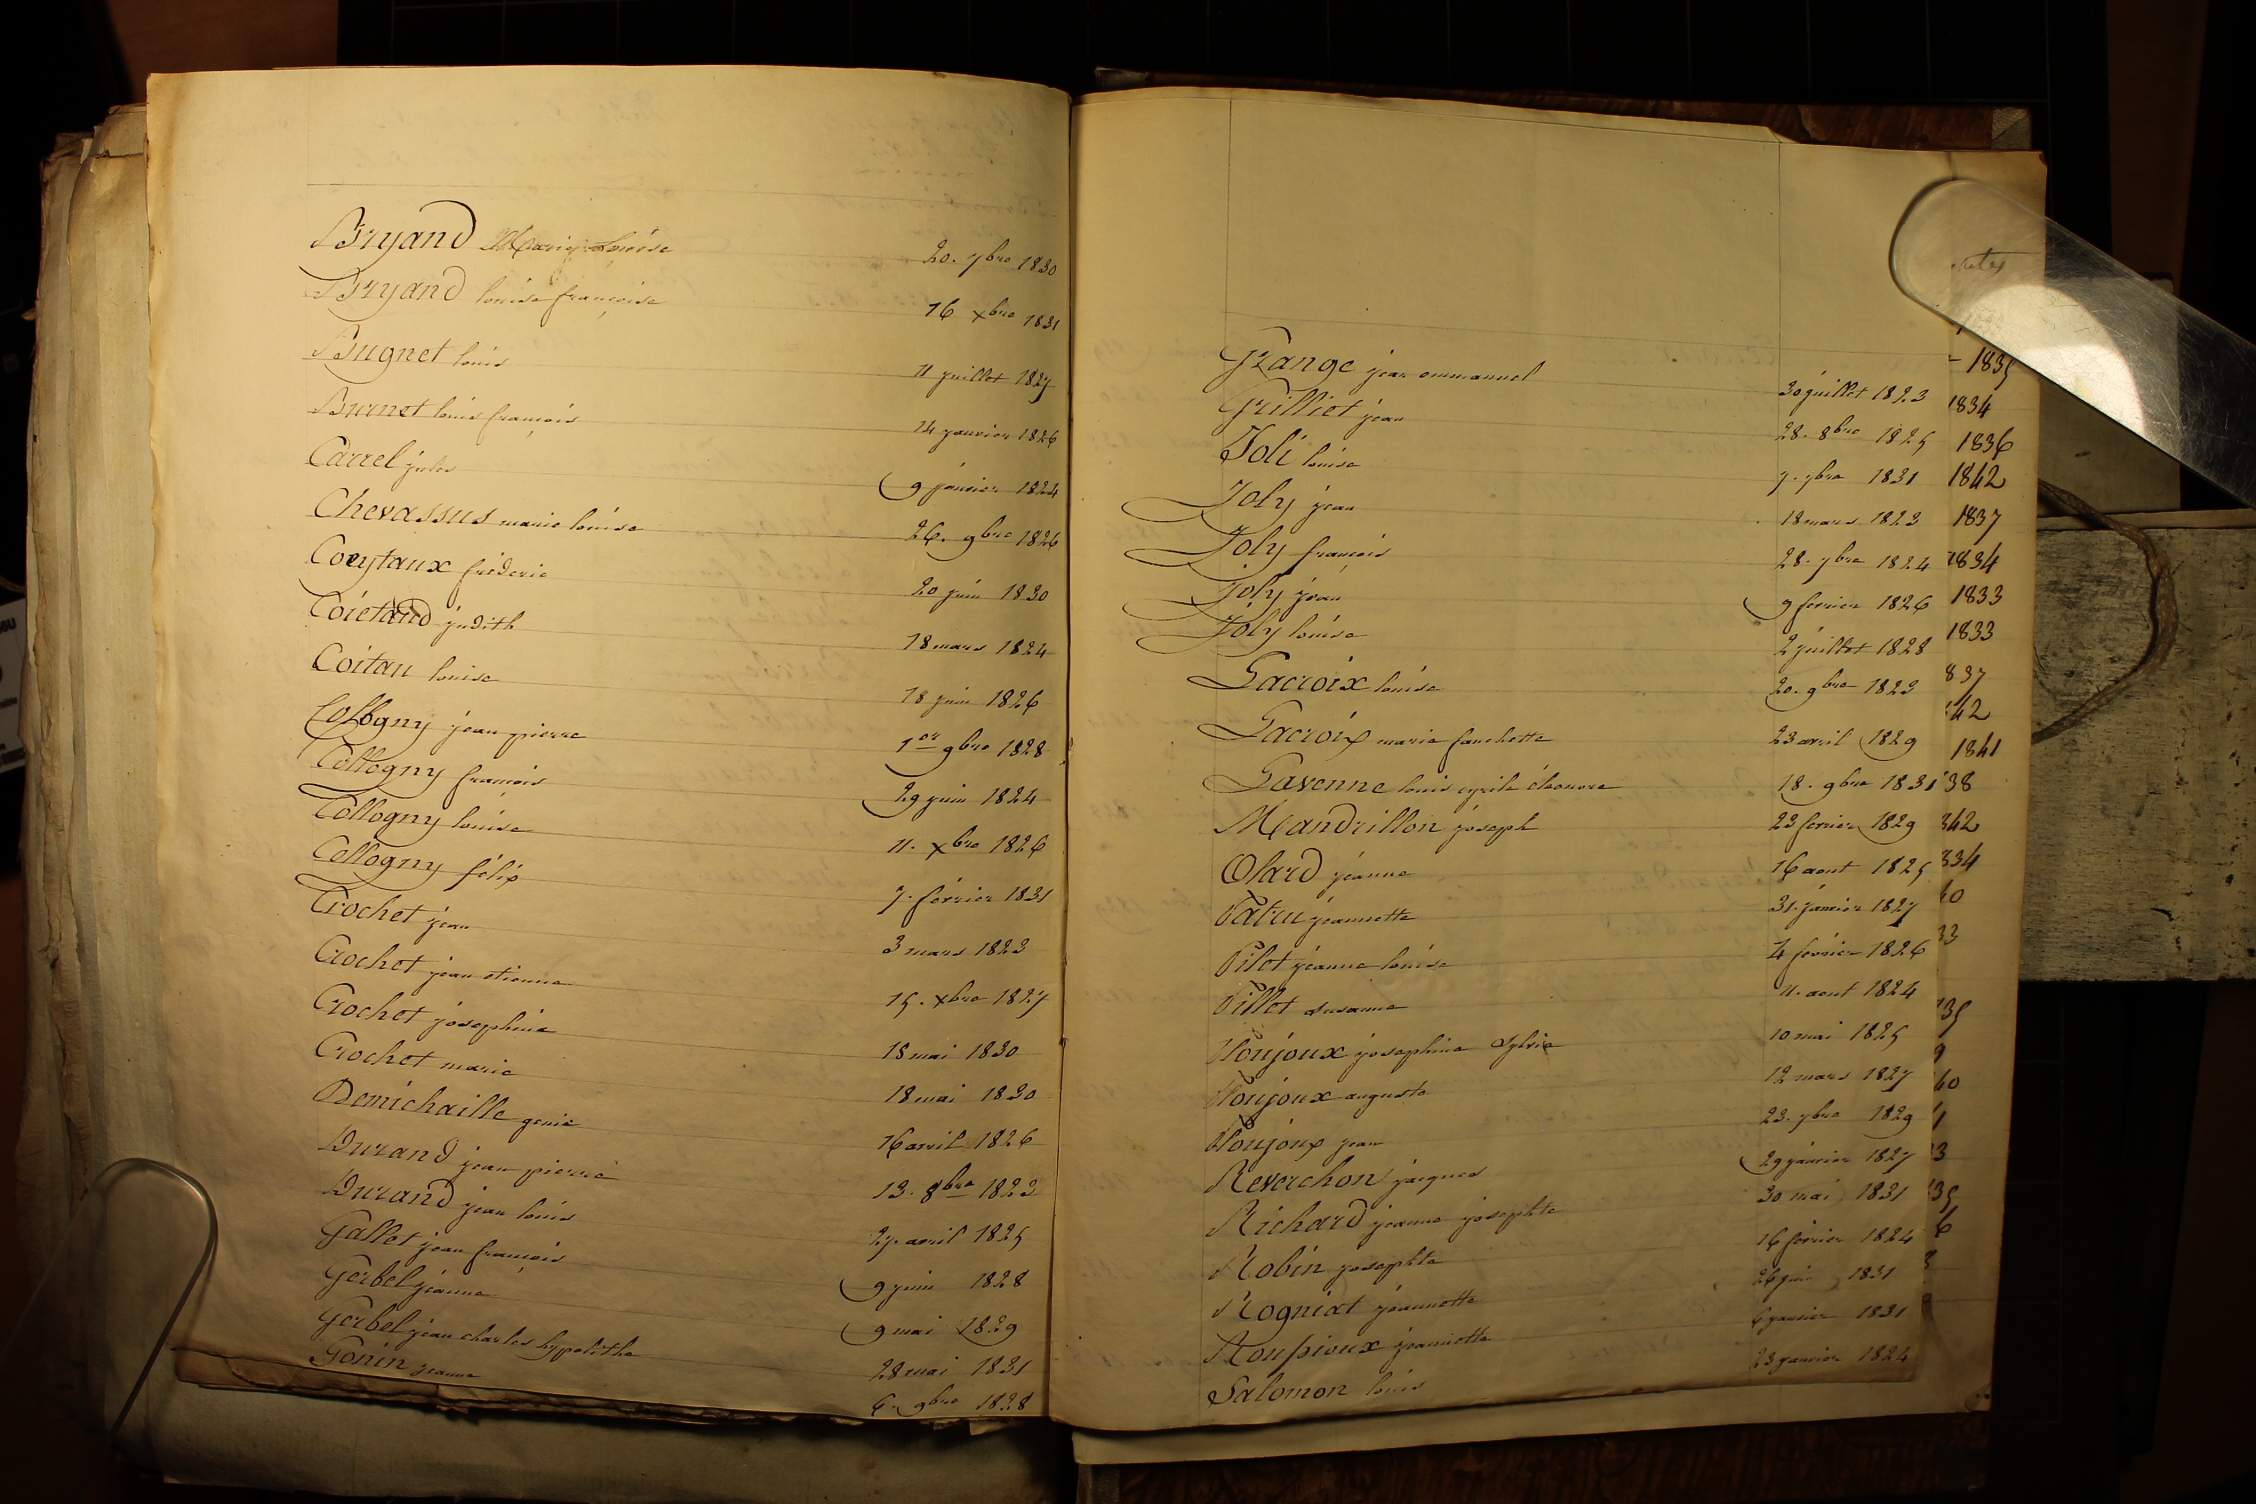 Bryand Marie Louise 20. 7bre 1830
Bryand louise françoise 16 xbre 1831
Bugnet louis 11 juillet 1827
Burnet louis françois 14 janvier 1826
Carrel jules 9 janvier 1824
Chevassus marie louise 26. 9bre 1826
Coeytaux fréderic 20 juin 1830
Coietaud judith 18 mars 1824
Coitau louise 18 juin 1826
Collogny jean pierre 1er 9bre 1828
Collogny françois 29 juin 1824
Collogny louise 11. xbre 1826
Collogny félix 7. février 1831
Crochet jean 3 mars 1823
Crochet jean etienne 15. xbre 1827
Crochet josephine 18 mai 1830
Crochet marie 18 mai 1830
Demichaille genie 16 avril 1826
Durand jean pierre 13. 8bre 1823
Durand jean louis 27. avril 1825
Gallet jean françois 9 juin 1828
Gerbel jeanne 9 mai 1829
Gerbel jean charles hypolithe 28 mai 1831
Gonin jeanne 6. 9bre 1828
Grange jean emmanuel 30 juillet 1823
Grilliet jean 28. 8bre 1825
Joli louise 7. 7bre 1831
Joly jean 18 mars 1823
Joly françois 28. 7bre 1824
Joly jean 9 fevrier 1826
Joly louise 2 juillet 1828
Lacroix louise 20. 9bre 1823
Lacroix marie fanchette 23 avril 1829
Lavenne louis cyrile éleonore 18. 9bre 1831
Mandrillon joseph 23 fevrier 1829
Olard jeanne 16 aout 1825
Patru jeannette 31. janvier 1827
Pilet jeanne louise 4 fevrier 1826
Pillet susanne 11. aout 1824
Ponjoux josephine sylvie 10 mai 1825
Ponjoux auguste 12 mars 1827
Ponjoux jean 23. 7bre 1829
Reverchon jacques 29 janvier 1827
Richard jeanne josephte 30 mai 1831
Robin josephte 16 fevrier 1824
Rogniat jeannette 26 juin 1831
Roupioux jeannette 6 janvier 1831
Salomon louis 23 janvier 1824
1835
1834
1836
1842
1837
1834
1833
1833
837
42
1841
38
342
834